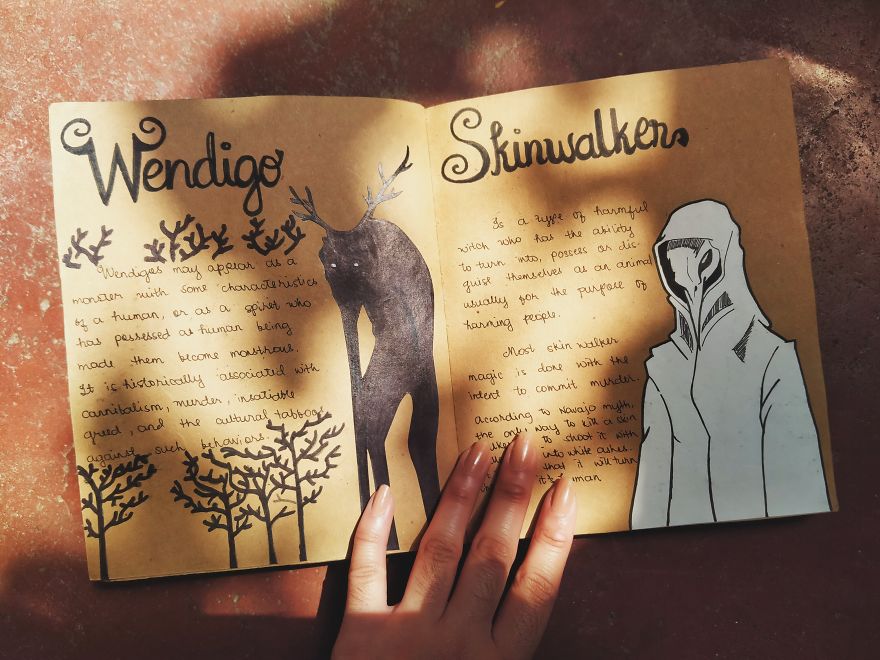 Wendigo
Wendigos may appear as a
monster with some characteristics
of a human, or as a spirit who
has possessed a human being
made them become monstrous.
It is historically associated with
cannibalism, murder, insatiable
greed, and the cultural taboos
against such behaviors.
Skinwalkers
Is a type of harmful
witch who has the ability
to turn into, possess or dis-
guise themselves as an animal
usually for the purpose of
harming people.
Most skin walker
magic is done with the
intent to commit murder.
According to Navajo myth,
the only way to kill a skin
to shoot it with
into white ashes.
that it will turn